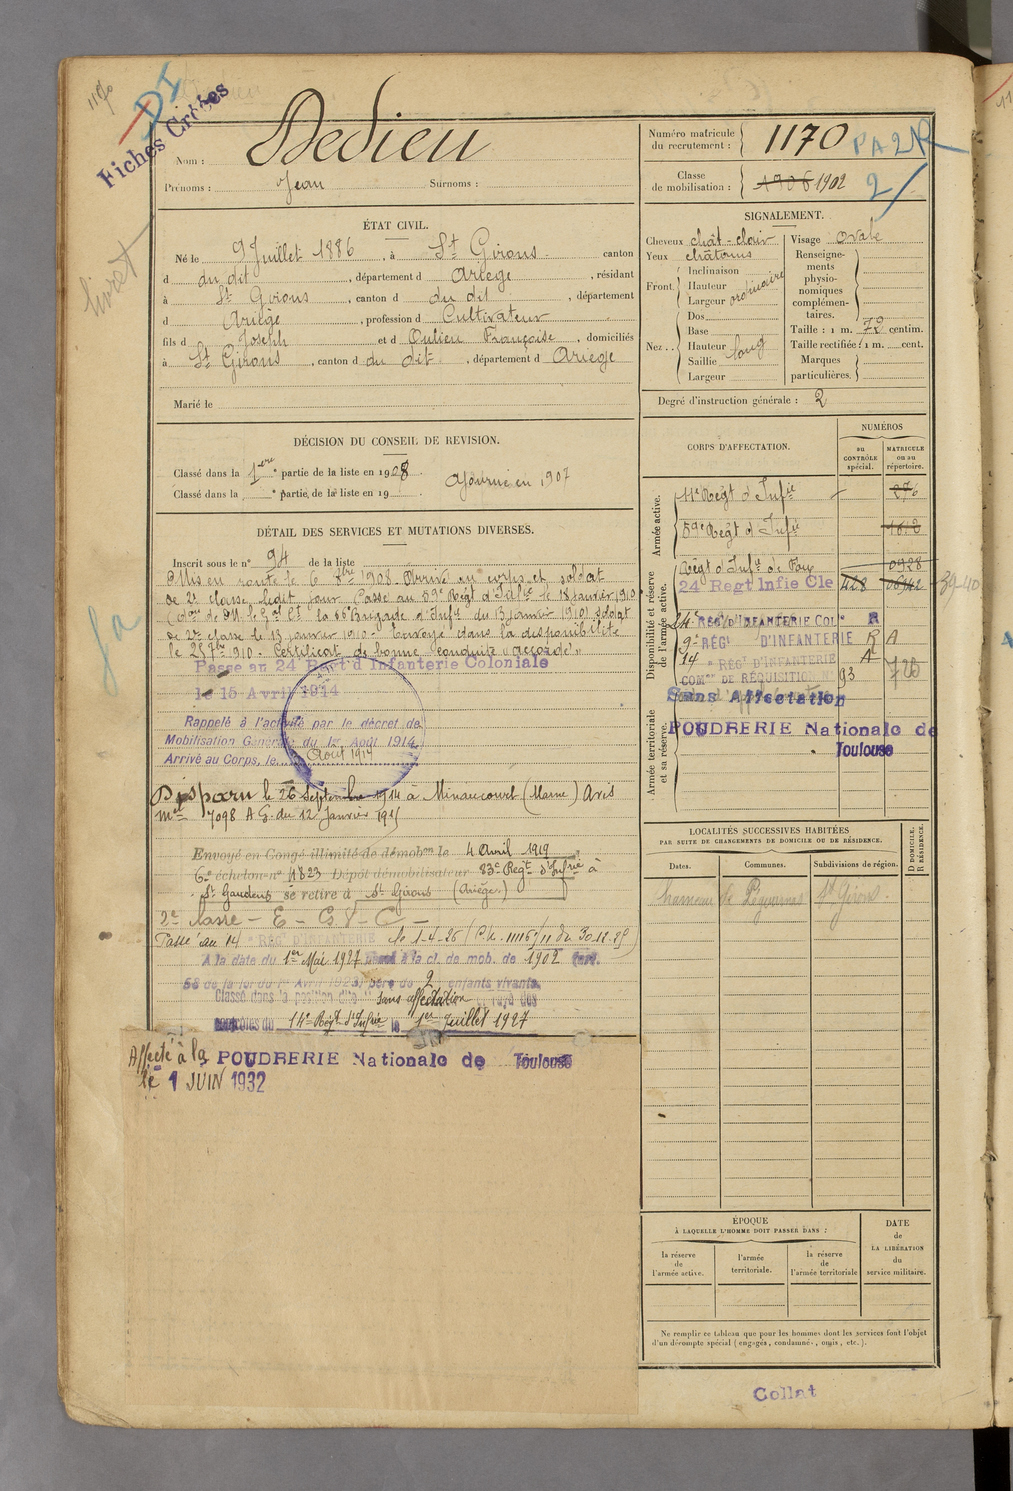 1170
DI
Fiches Créées
livret
Nom : Dedieu
Prénoms : Jean Surnoms :
Numéro matricule du recrutement : 1170 PA2R
Classe de mobilisation : 1906 1902 2
ÉTAT CIVIL.
Né le 9 Juillet 1886, à St Girons canton
d du dit, département d Ariège, résidant
à St Girons, canton d du dit, département
d Ariège, profession d Cultivateur
fils d Joseph et d Oulieu Françoise, domiciliés
à St Girons, canton d du dit, département d Ariège
Marié le
SIGNALEMENT.
Cheveux chât-clair
Yeux châtains
Front. Inclinaison
Hauteur
Largeur ordinaire
Nez.. Dos
Base
Hauteur
Saillie long
Largeur
Visage Ovale
Renseignements physionomiques complémentaires.
Taille : 1 m. 70 centim.
Taille rectifiée : 1 m. cent.
Marques particulières.
Degré d'instruction générale : 2
DÉCISION DU CONSEIL DE REVISION.
Classé dans la 1ère partie de la liste en 1908
Ajourné en 1907
Classé dans la partie de la liste en 19
DÉTAIL DES SERVICES ET MUTATIONS DIVERSES.
Inscrit sous le n° 94 de la liste
Mis en route le 6 8bre 1908. Arrivé au corps et soldat
de 2e classe ledit jour. Passé au 59e Régt d'Infie le 18 janvier 1910
de 2e classe le 13 janvier 1910. Envoyé dans la disponibilité
le 25 7bre 1910. Certificat de bonne conduite "accordé"
Passé au 24 Régt d'Infanterie Coloniale
le 15 Avril 1914
Rappelé à l'activité par le décret de
Mobilisation Générale du 1er Août 1914
Arrivé au Corps, le Août 1914
Disparu le 26 Septembre 1914 à Minaucourt (Marne) Avis
mel 7098 AG. du 12 Janvier 1915
Envoyé en Congé illimité de démobon le 4 Avril 1919
6e échelon n° 4823 Dépôt démobilisateur 83e Régt d'Infrie à
St Gaudens se retire à St Girons (Ariège.)
Passé au 14e RÉGt D'INFANTERIE le 1-4-26
A la date du 1er Mai 1927 passé à la cl. de mob. de 1902
58 de la loi du 1er Avril 1923, père de 2 enfants vivants.
Classé dans la position dite "sans affectation" et rayé des
contrôles du 14e Régt d'Infrie le 1er Juillet 1927
Affecté à la POUDRERIE Nationale de Toulouse
le 1 JUIN 1932
CORPS D'AFFECTATION.
NUMÉROS
DU CONTRÔLE spécial.
MATRICULE ou au répertoire.
Armée active.
11e Régt d'Infie
59e Régt d'Infie 1612
Disponibilité et réserve de l'armée active.
Régt d'Infie de Foix 0928
24 Regt Infie Cle 428
24e RÉGt D'INFANTERIE COLe R
9e RÉGt D'INFANTERIE R A
14e RÉGt D'INFANTERIE A
COMon DE RÉQUISITION N° 93
Sans Affectation
Armée territoriale et sa réserve.
POUDRERIE Nationale de
Toulouse
LOCALITÉS SUCCESSIVES HABITÉES
PAR SUITE DE CHANGEMENTS DE DOMICILE OU DE RÉSIDENCE.
D DOMICILE. R RÉSIDENCE.
Dates. Communes. Subdivisions de région.
St Girons.
ÉPOQUE
À LAQUELLE L'HOMME DOIT PASSER DANS :
la réserve de l'armée active.
l'armée territoriale.
la réserve de l'armée territoriale
DATE de LA LIBÉRATION du service militaire.
Ne remplir ce tableau que pour les hommes dont les services font l'objet
d'un décompte spécial (engagés, condamnés, omis, etc.).
Collat